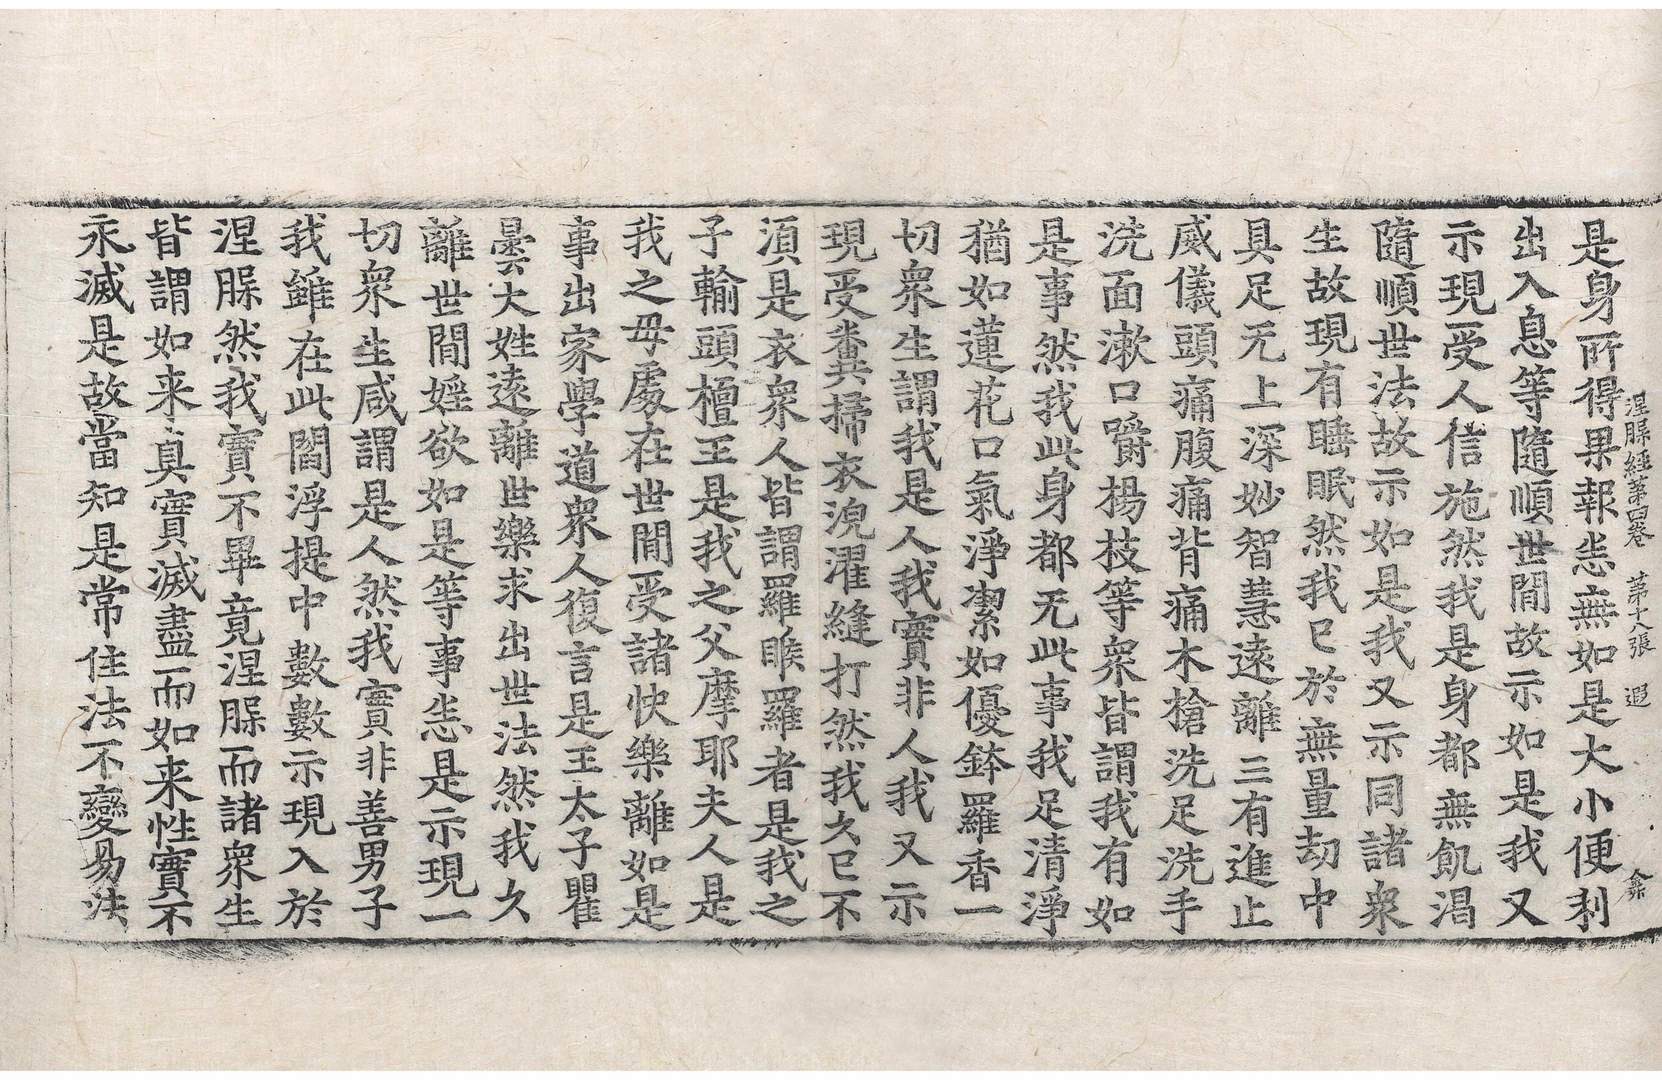 涅槃經第四卷 第十八張 遐
是身所得果報悉無如是大小便利
出入息等隨順世間故示如是我又
示現受人信施然我是身都無飢渴
隨順世法故示如是我又示同諸衆
生故現有睡眠然我已於無量劫中
具足无上深妙智慧遠離三有進止
威儀頭痛腹痛背痛木槍洗足洗手
洗面漱口嚼楊枝等衆皆謂我有如
是事然我此身都无此事我足清淨
猶如蓮花口氣淨潔如優鉢羅香一
切衆生謂我是人我實非人我又示
現受糞掃衣浣濯縫打然我久已不
須是衣衆人皆謂羅睺羅者是我之
子輸頭檀王是我之父摩耶夫人是
我之母處在世間受諸快樂離如是
事出家學道衆人復言是王太子瞿
曇大姓遠離世樂求出世法然我久
離世間婬欲如是等事悉是示現一
切衆生咸謂是人然我實非善男子
我雖在此閻浮提中數數示現入於
涅槃然我實不畢竟涅槃而諸衆生
皆謂如来真實滅盡而如来性實不
永滅是故當知是常住法不變易法